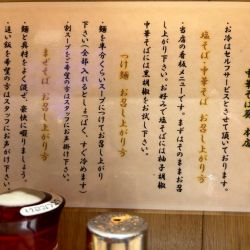 ・お冷はセルフサービスとさせて頂いております。
塩そば・中華そば　お召し上がり方
当店の看板メニューです。まずはそのままお召し上がり下さい。お好みで塩そばには柚子胡椒
中華そばには黒胡椒をお試し下さい。
つけ麺　お召し上がり方
麺を半分くらいスープにつけてお召し上がり
下さい（全部入れるとしょっぱく、すぐ冷めます）
割スープをご希望の方はスタッフにお声掛け下さい。
まぜそば　お召し上がり方
麺と具材をよく混ぜ、豪快に啜りましょう。
追い飯を希望の方はスタッフにお声がけ下さい。